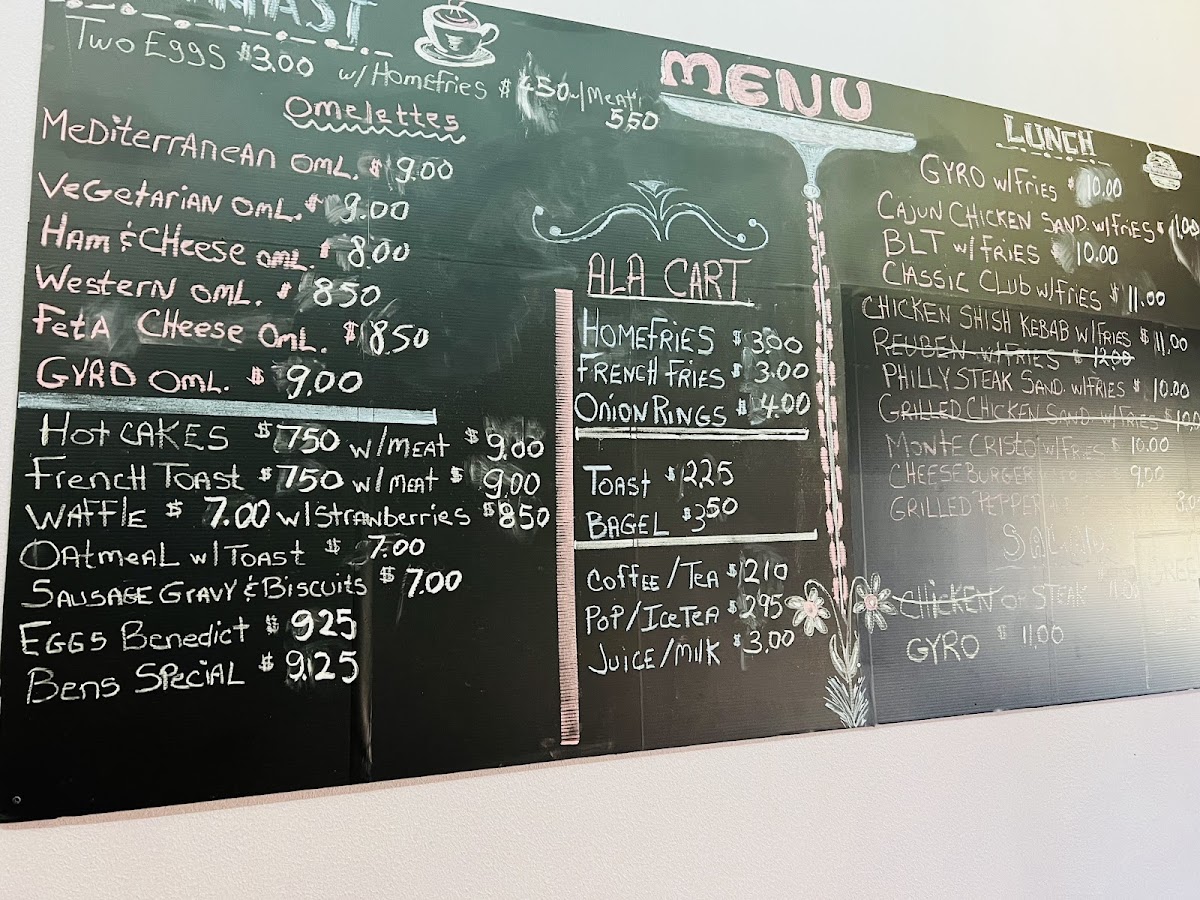 Two Eggs $3.00 w/Homefries $450 w/Meat
550
Omelettes
Mediterranean OML. $9.00
Vegetarian OML. $9.00
Ham & Cheese OML $8.00
Western OML. $850
Feta Cheese OML. $850
GYRO OML. $9.00
Hot CAKES $750 w/MEAT $9.00
French Toast $750 w/MEAT $9.00
WAFFlE $7.00 w/Strawberries $850
Oatmeal w/Toast $7.00
Sausage Gravy & Biscuits $7.00
Eggs Benedict $925
Bens Special $9.25
MENU
ALA CART
HOMEFRIES $3.00
FRENCH FRIES $3.00
ONION RINGS $4.00
TOAST $225
BAGEL $350
COFFEE/TEA $210
POP/ICE TEA $295
JUICE/MILK $3.00
LUNCH
GYRO w/Fries $10.00
CAJUN CHICKEN SAND. w/FRIES $11.00
BLT w/FRIES $10.00
Classic Club w/Fries $11.00
CHICKEN SHISH KEBAB w/FRIES $11.00
REUBEN w/FRIES $12.00
PHILLY STEAK SAND. w/FRIES $10.00
GRILLED CHICKEN SAND. w/FRIES $10.0
MONTE CRISTO w/FRIES $10.00
CHEESEBURGER 9.00
GRILLED PEPPER
CHICKEN or STEAK 11.00
GYRO $11.00